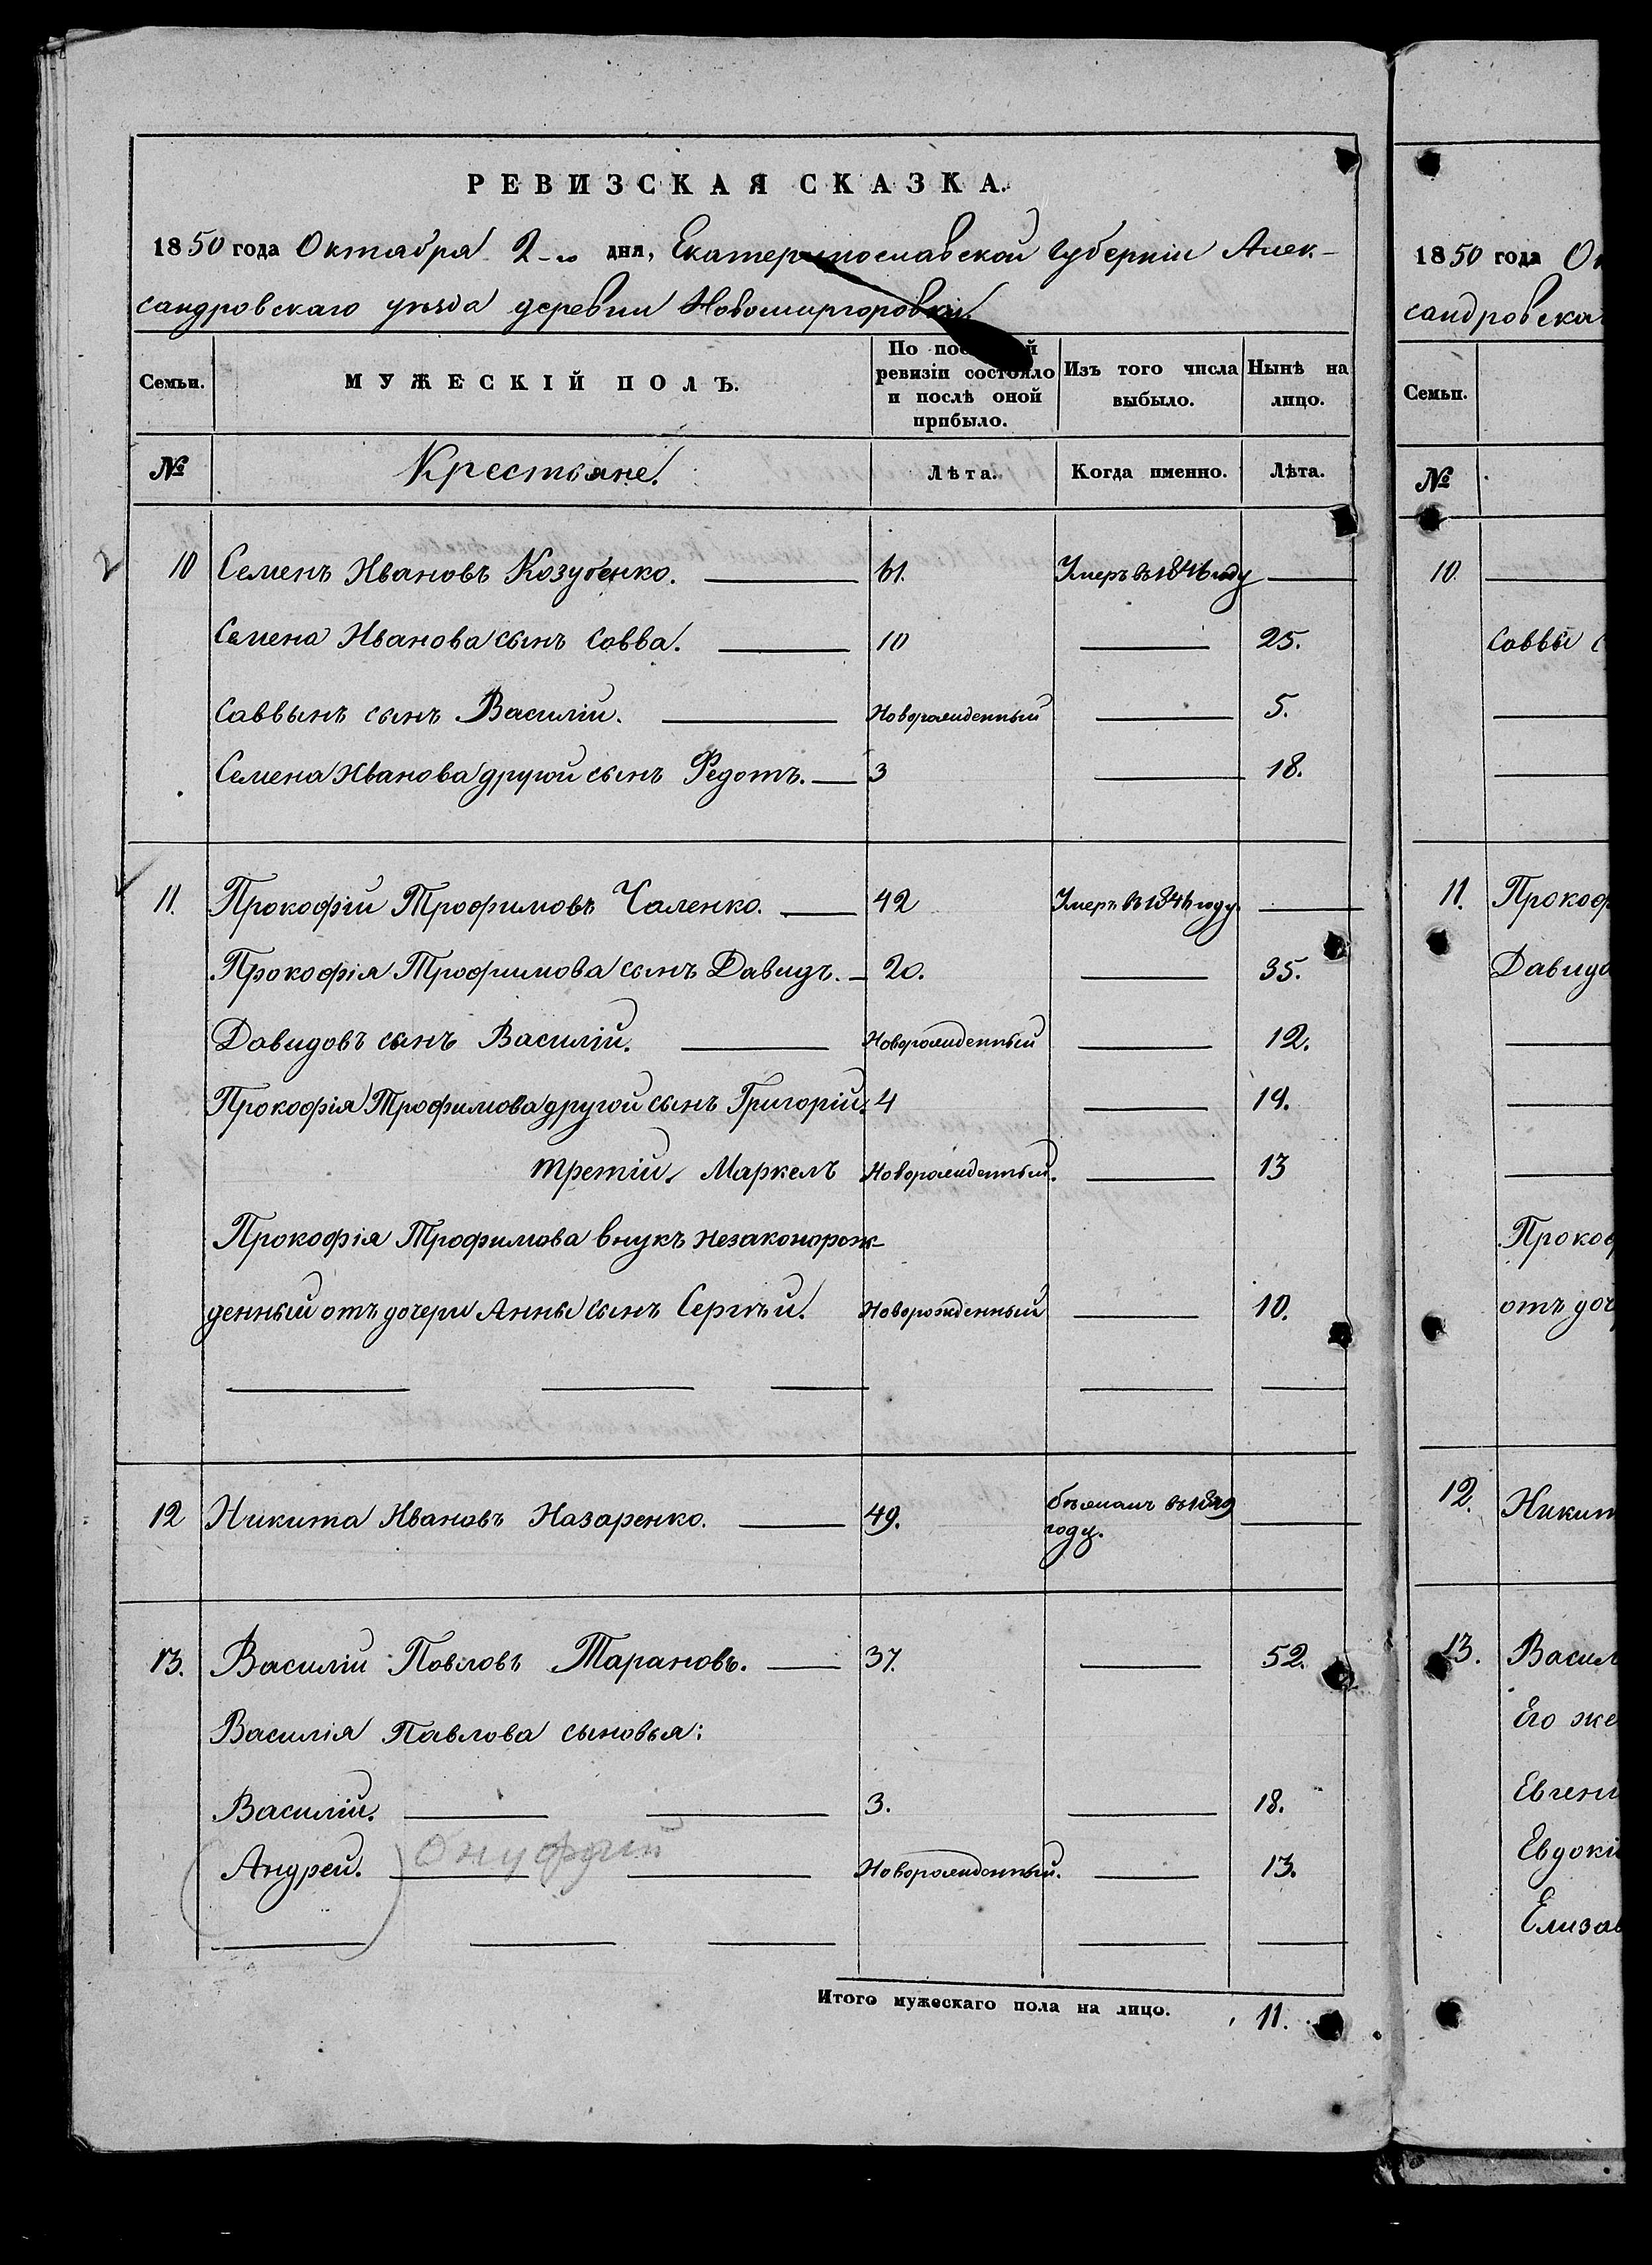 РЕВИЗСКАЯ СКАЗКА.
1850 года Октября 2-го дня, Екатеринославской Губерніи Алек-
сандровскаго уѣзда деревни Новомиргоровки
Семьи. МУЖЕСКІЙ ПОЛЪ. По последней ревизіи состояло и послѣ оной прибыло. Изъ того числа выбыло. Нынѣ на лицо.
№ Крестьяне. Лѣта. Когда именно. Лѣта.
10 Семенъ Ивановъ Козубенко. 61. Умеръ въ 1846 году
Семена Иванова сынъ Савва. 10 25.
Саввынъ сынъ Василій. Новорожденный 5.
Семена Иванова другой сынъ Федотъ. 3 18.
11. Прокофій Трофимовъ Чаленко. 42 Умеръ въ 1846 году.
Прокофія Трофимова сынъ Давидъ. 20. 35.
Давидовъ сынъ Василій. Новорожденный 12.
Прокофія Трофимова другой сынъ Григорій. 4 19.
третій Маркелъ Новорожденный. 13
Прокофія Трофимова внукъ незаконорож-
денный отъ дочери Анны сынъ Сергѣй. Новорожденный 10.
12 Никита Ивановъ Назаренко. 49. бѣжалъ въ 1839
году.
13. Василій Павловъ Тарановъ. 37. 52.
Василія Павлова сыновья:
Василій. 3. 18.
(Андрей.) Онуфрій Новорожденный. 13.
Итого мужескаго пола на лицо. 11.
1850 года
сандровска
Семьи.
№
10.
Саввы
11. Прокоф
Давидо
Прокоф
отъ доч
12. Никит
13. Васил
Его же
Евгені
Евдокі
Елизав